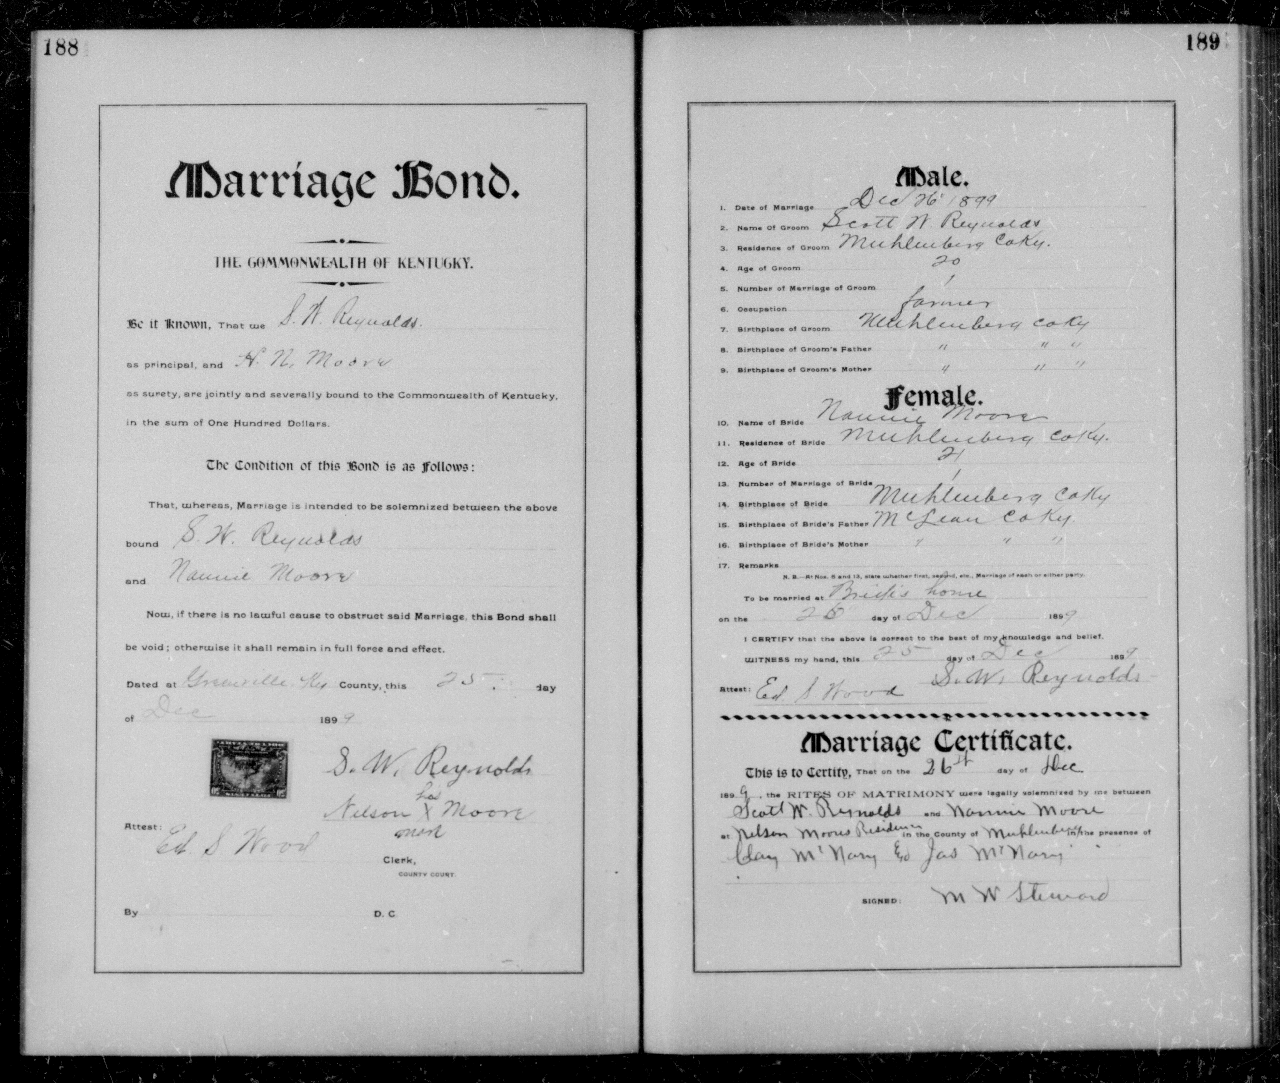 188
Marriage Bond.
THE COMMONWEALTH OF KENTUCKY.
Be it Known, That we S. W. Reynolds.
as principal, and H. N. Moore
as surety, are jointly and severally bound to the Commonwealth of Kentucky,
in the sum of One Hundred Dollars.
The Condition of this Bond is as Follows:
That, whereas, Marriage is intended to be solemnized between the above
bound S. W. Reynolds
and Nannie Moore
Now, if there is no lawful cause to obstruct said Marriage, this Bond shall
be void; otherwise it shall remain in full force and effect.
Dated at Greenville Ky County, this 25 day
of Dec 1899
S. W. Reynolds
his
Nelson X Moore
mark
Attest:
Ed S Wood
Clerk,
COUNTY COURT.
By D. C.
189
Male.
1. Date of Marriage Dec 26 1899
2. Name Of Groom Scott W Reynolds
3. Residence of Groom Muhlenberg Co Ky.
4. Age of Groom 20
5. Number of Marriage of Groom 1
6. Occupation farmer
7. Birthplace of Groom Muhlenberg Co Ky
8. Birthplace of Groom's Father " " "
9. Birthplace of Groom's Mother " " "
Female.
10. Name of Bride Nannie Moore
11. Residence of Bride Muhlenberg Co Ky.
12. Age of Bride 21
13. Number of Marriage of Bride 1
14. Birthplace of Bride Muhlenberg Co Ky
15. Birthplace of Bride's Father McLean Co Ky
16. Birthplace of Bride's Mother " " "
17. Remarks
N. B.—At Nos. 5 and 13, state whether first, second, etc., Marriage of each or either party.
To be married at Bride's home
on the 26 day of Dec 1899
I CERTIFY that the above is correct to the best of my knowledge and belief.
WITNESS my hand, this 25 day of Dec 1899
Attest: Ed S Wood S. W. Reynolds
Marriage Certificate.
This is to Certify, That on the 26th day of Dec
1899, the RITES OF MATRIMONY were legally solemnized by me between
Scott W. Reynolds and Nannie Moore
at Nelson Moores Residence in the County of Muhlenberg in the presence of
Clay McNary & Jas McNary
SIGNED: M W Steward